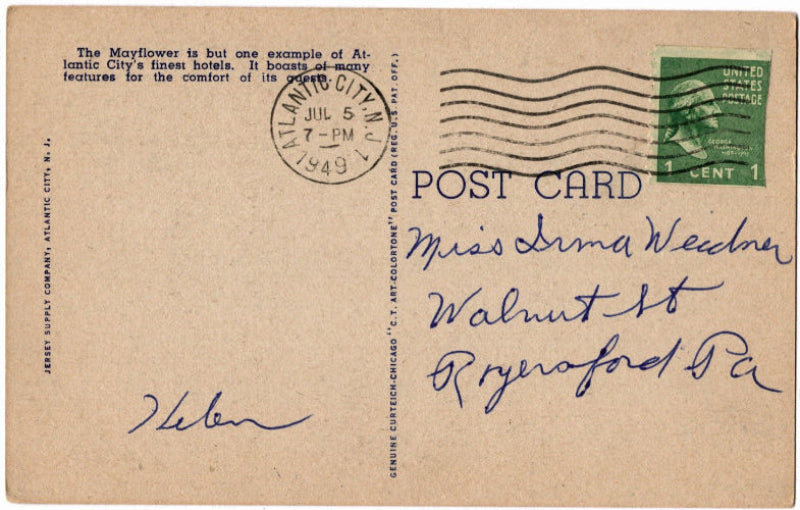 The Mayflower is but one example of At-
lantic City's finest hotels. It boasts of many
features for the comfort of its guests.
ATLANTIC CITY, N.J. 1
JUL 5
7-PM
1949
UNITED
STATES
POSTAGE
GEORGE
WASHINGTON
1 CENT 1
POST CARD
Miss Irma Weidner
Walnut St
Royersford Pa
Helen
JERSEY SUPPLY COMPANY, ATLANTIC CITY, N. J.
GENUINE CURTEICH-CHICAGO "C.T. ART-COLORTONE" POST CARD (REG. U.S. PAT. OFF.)